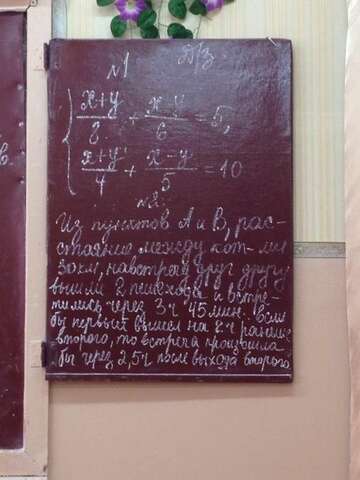 №1 Д/З
{ x+y/8 + x-y/6 = 5,
x+y/4 + x-y/5 = 10
№2.
Из пунктов А и В, рас-
стояние между кот-ми
30км, навстречу друг другу
вышли 2 пешехода и встре-
тились через 3ч 45мин. Если
бы первый вышел на 2ч раньше
второго, то встреча произошла
бы через 2,5ч после выхода второго
в.